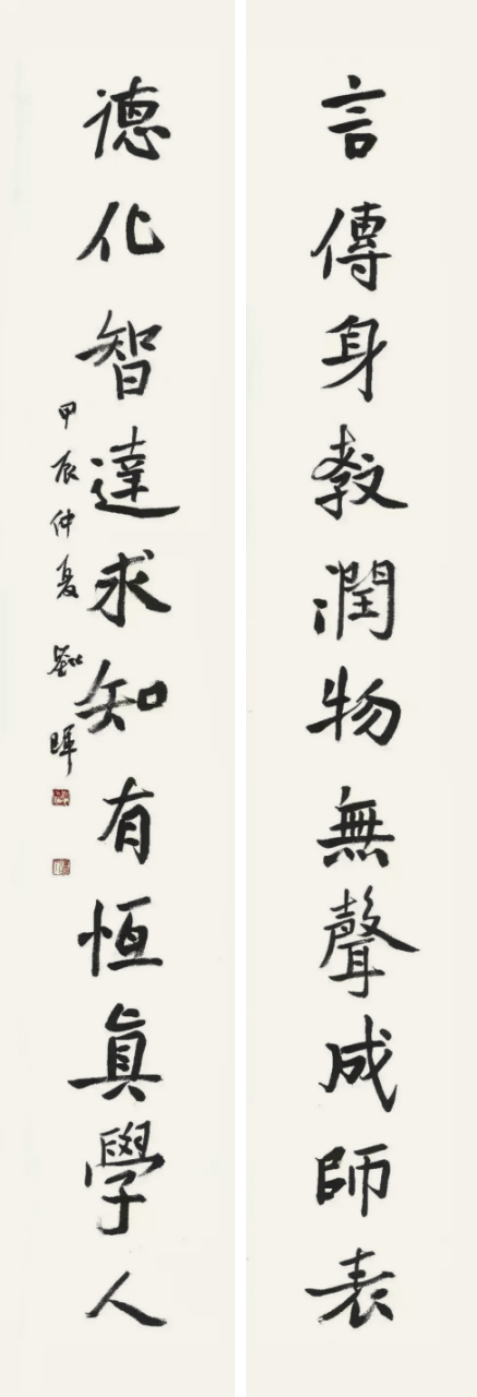 言傳身教潤物無聲成師表
德化智達求知有恆真學人
甲辰仲夏 劉暉